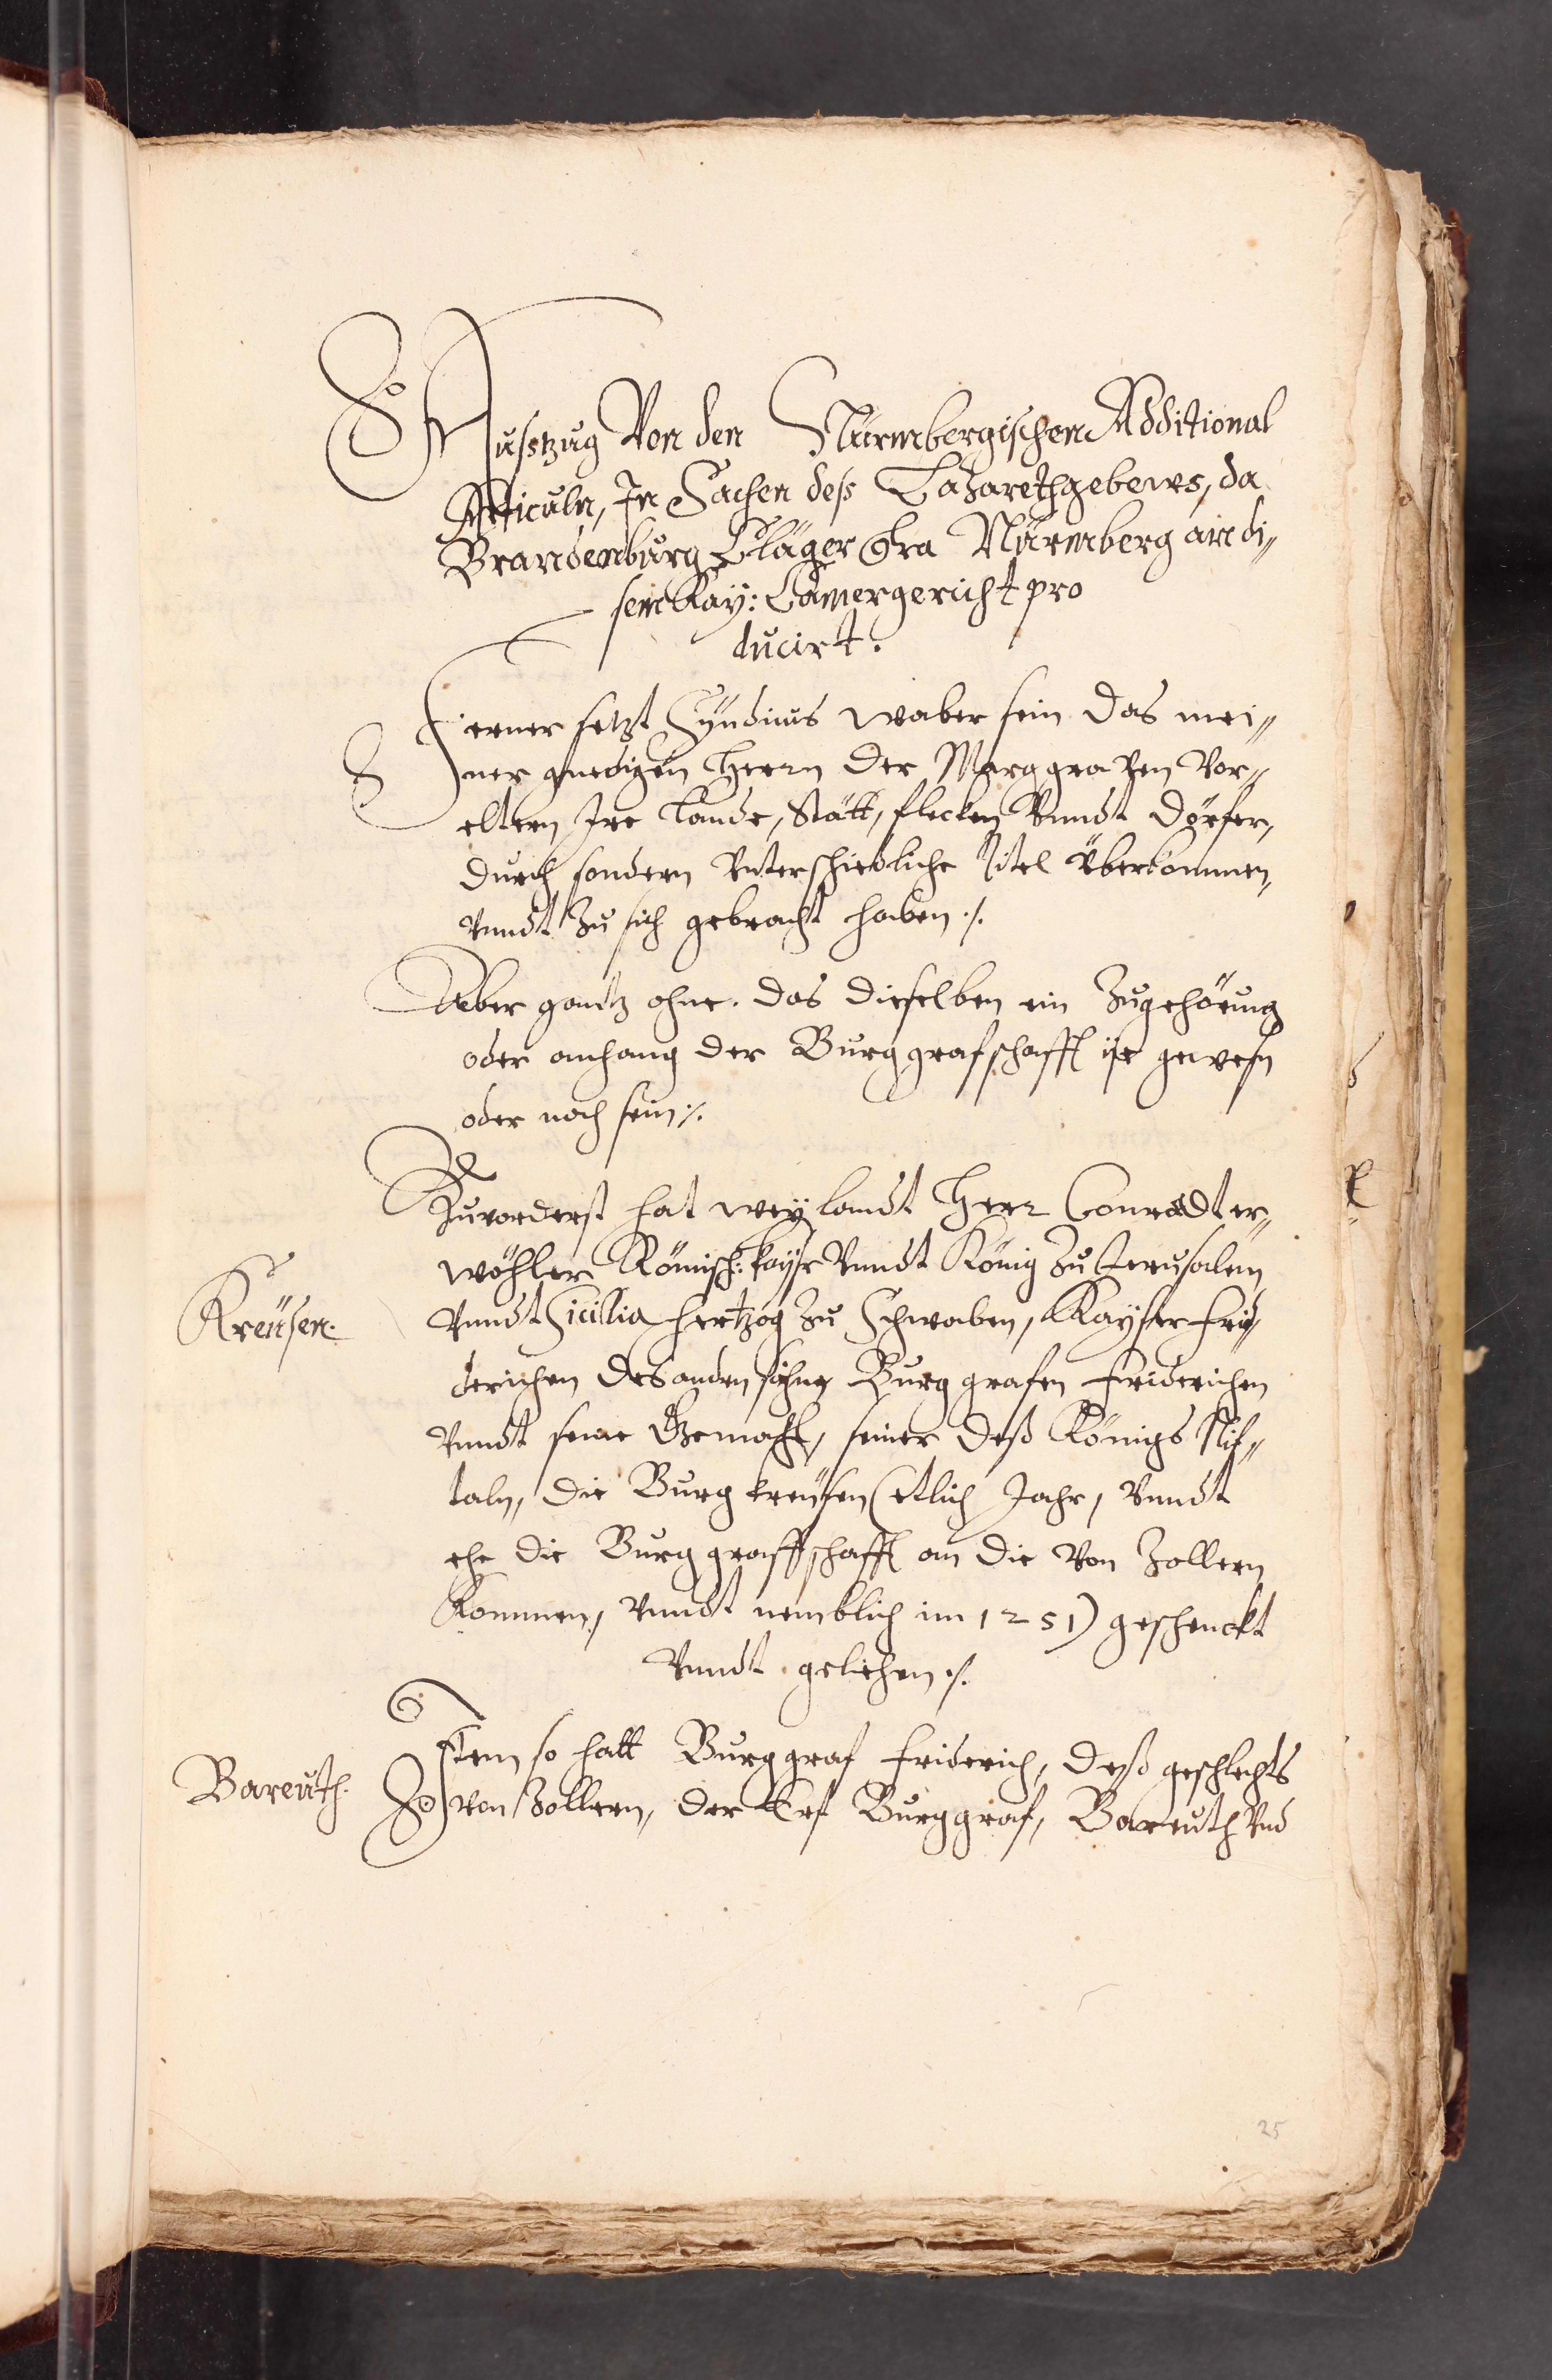 Außtzug Von den Nürmbergischen Additional
Articuln, In Sachen deß Lazarethgebews, da
Brandenburg Cläger Ctra Nürmberg an di„
sem Kay: Camergericht pro
ducirt.
Ferner setzt Syndicus wahr sein das mei„
ner gnedigen Herrn der Marggraven Vor„
eltern Ire Lande, Stätt, flecken Vnndt Dörfer,
durch sondern Vnterschiedliche Titel überkommen,
Vnndt Zu sich gebracht haben ./.
Aber gantz ohne. das dieselben ein Zugehörung
oder anhang der Burggrafschafft ye gewesn
oder noch sein ./.
Zuvorderst hat weylandt Herr Conradt er„
wöhlter Römisch: Kayser Vnndt König Zu Jerusalem
Vnndt Sicilia Hertzog Zu Schwaben, Kayser Frid„
Kreüsen.
derichen des andern sohn Burggrafen Friderichen
Vnndt seine Gemahl, seiner deß Königs Nif„
taln, die Burg Kreüsen (etlich Jahr, Vnndt
ehe die Burggraffschafft an die Von Zollern
Kommen, Vnndt nemblich im 1251) geschenckt
Vnndt gelihen ./.
Item so hatt Burggraf Friderich, deß geschlechts
Bareuth.
von Zollern, der Erst Burggraf, Bareuth Vnd
25